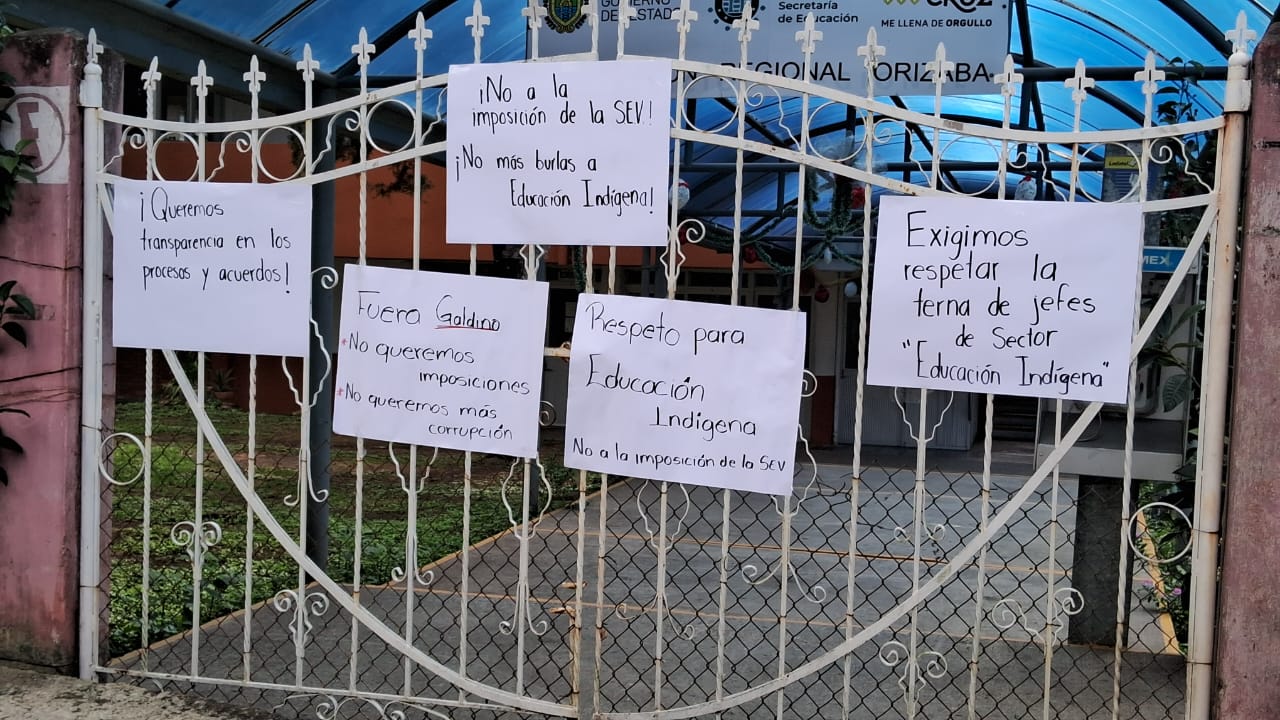 GOBIERNO
DE ESTADO
Secretaría
de Educación
ME LLENA DE ORGULLO
REGIONAL ORIZABA
¡No a la
imposición de la SEV!
¡No más burlas a
Educación Indígena!
¡Queremos
transparencia en los
procesos y acuerdos!
Fuera Galdino
*No queremos
imposiciones
*No queremos más
corrupción
Respeto para
Educación
Indigena
No a la imposición de la SEV
Exigimos
respetar la
terna de jefes
de Sector
"Educación Indígena"